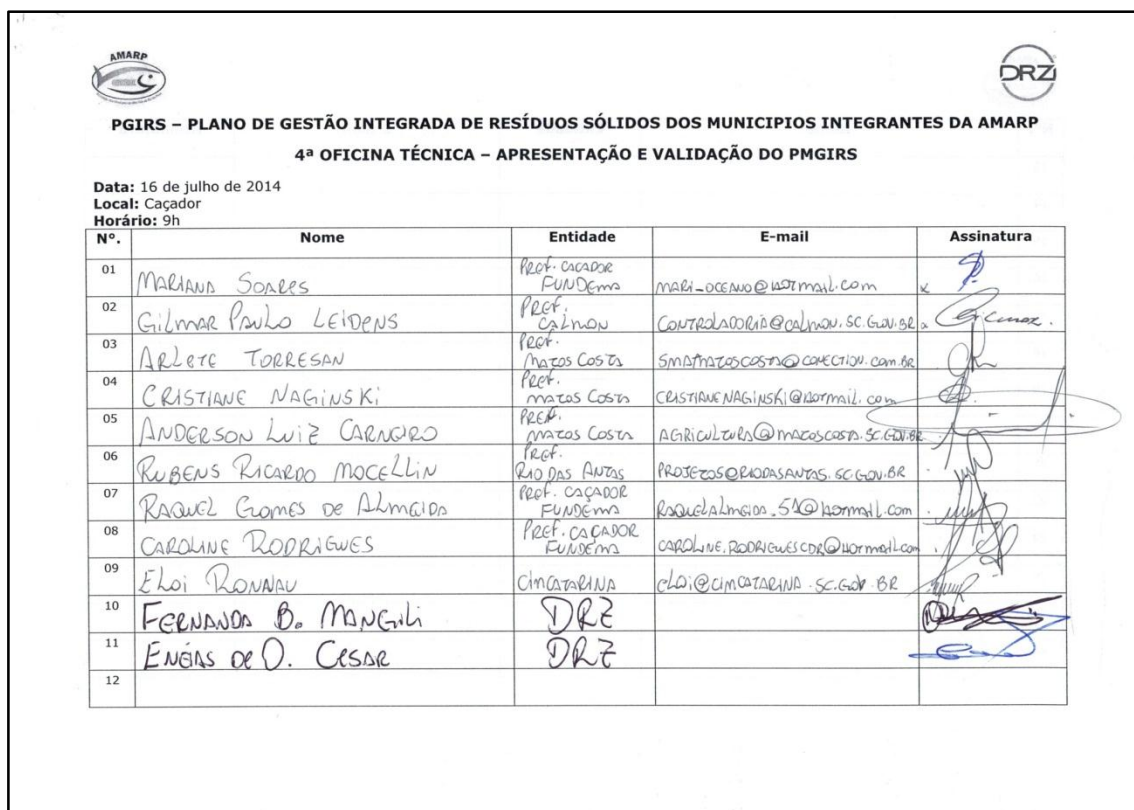 AMARP
DRZ
PGIRS – PLANO DE GESTÃO INTEGRADA DE RESÍDUOS SÓLIDOS DOS MUNICIPIOS INTEGRANTES DA AMARP
4ª OFICINA TÉCNICA – APRESENTAÇÃO E VALIDAÇÃO DO PMGIRS
Data: 16 de julho de 2014
Local: Caçador
Horário: 9h
Nº. Nome Entidade E-mail Assinatura
01 MARIANA SOARES PREF. CAÇADOR FUNDEMA MARI_OCEANO@HOTMAIL.COM
02 GILMAR PAULO LEIDENS PREF. CALMON CONTROLADORIA@CALMON.SC.GOV.BR Gilmar
03 ARLETE TORRESAN PREF. MATOS COSTA SMAMATOSCOSTA@CONECTION.COM.BR
04 CRISTIANE NAGINSKI PREF. MATOS COSTA CRISTIANENAGINSKI@HOTMAIL.COM
05 ANDERSON LUIZ CARNEIRO PREF. MATOS COSTA AGRICULTURA@MATOSCOSTA.SC.GOV.BR
06 RUBENS RICARDO MOCELLIN PREF. RIO DAS ANTAS PROJETOS@RIODASANTAS.SC.GOV.BR
07 RAQUEL GOMES DE ALMEIDA PREF. CAÇADOR FUNDEMA RAQUELALMEIDA.51@HOTMAIL.COM
08 CAROLINE RODRIGUES PREF. CAÇADOR FUNDEMA CAROLINE.RODRIGUESCDR@HOTMAIL.COM
09 ELOI RONNAU CIMCATARINA ELOI@CIMCATARINA.SC.GOV.BR
10 FERNANDA B. MANGILI DRZ
11 ENÉIAS DE O. CESAR DRZ
12